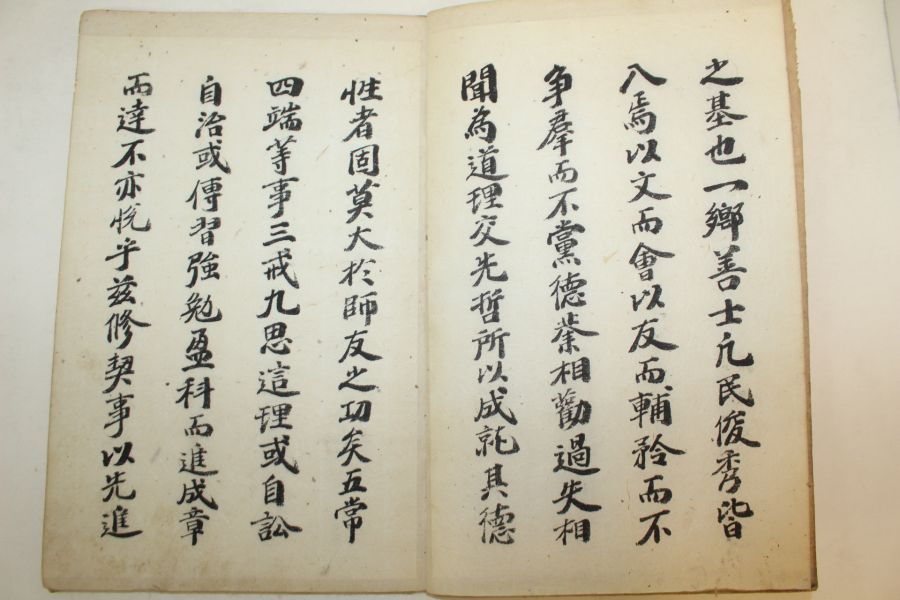 之基也一鄉善士凡民俊秀皆
入焉以文而會以友而輔矜而不
争羣而不黨德業相勸過失相
聞為道理交先哲所以成就其德
性者固莫大於師友之功矣五常
四端等事三戒九思這理或自訟
自治或傳習強勉盈科而進成章
而達不亦悅乎玆修契事以先進